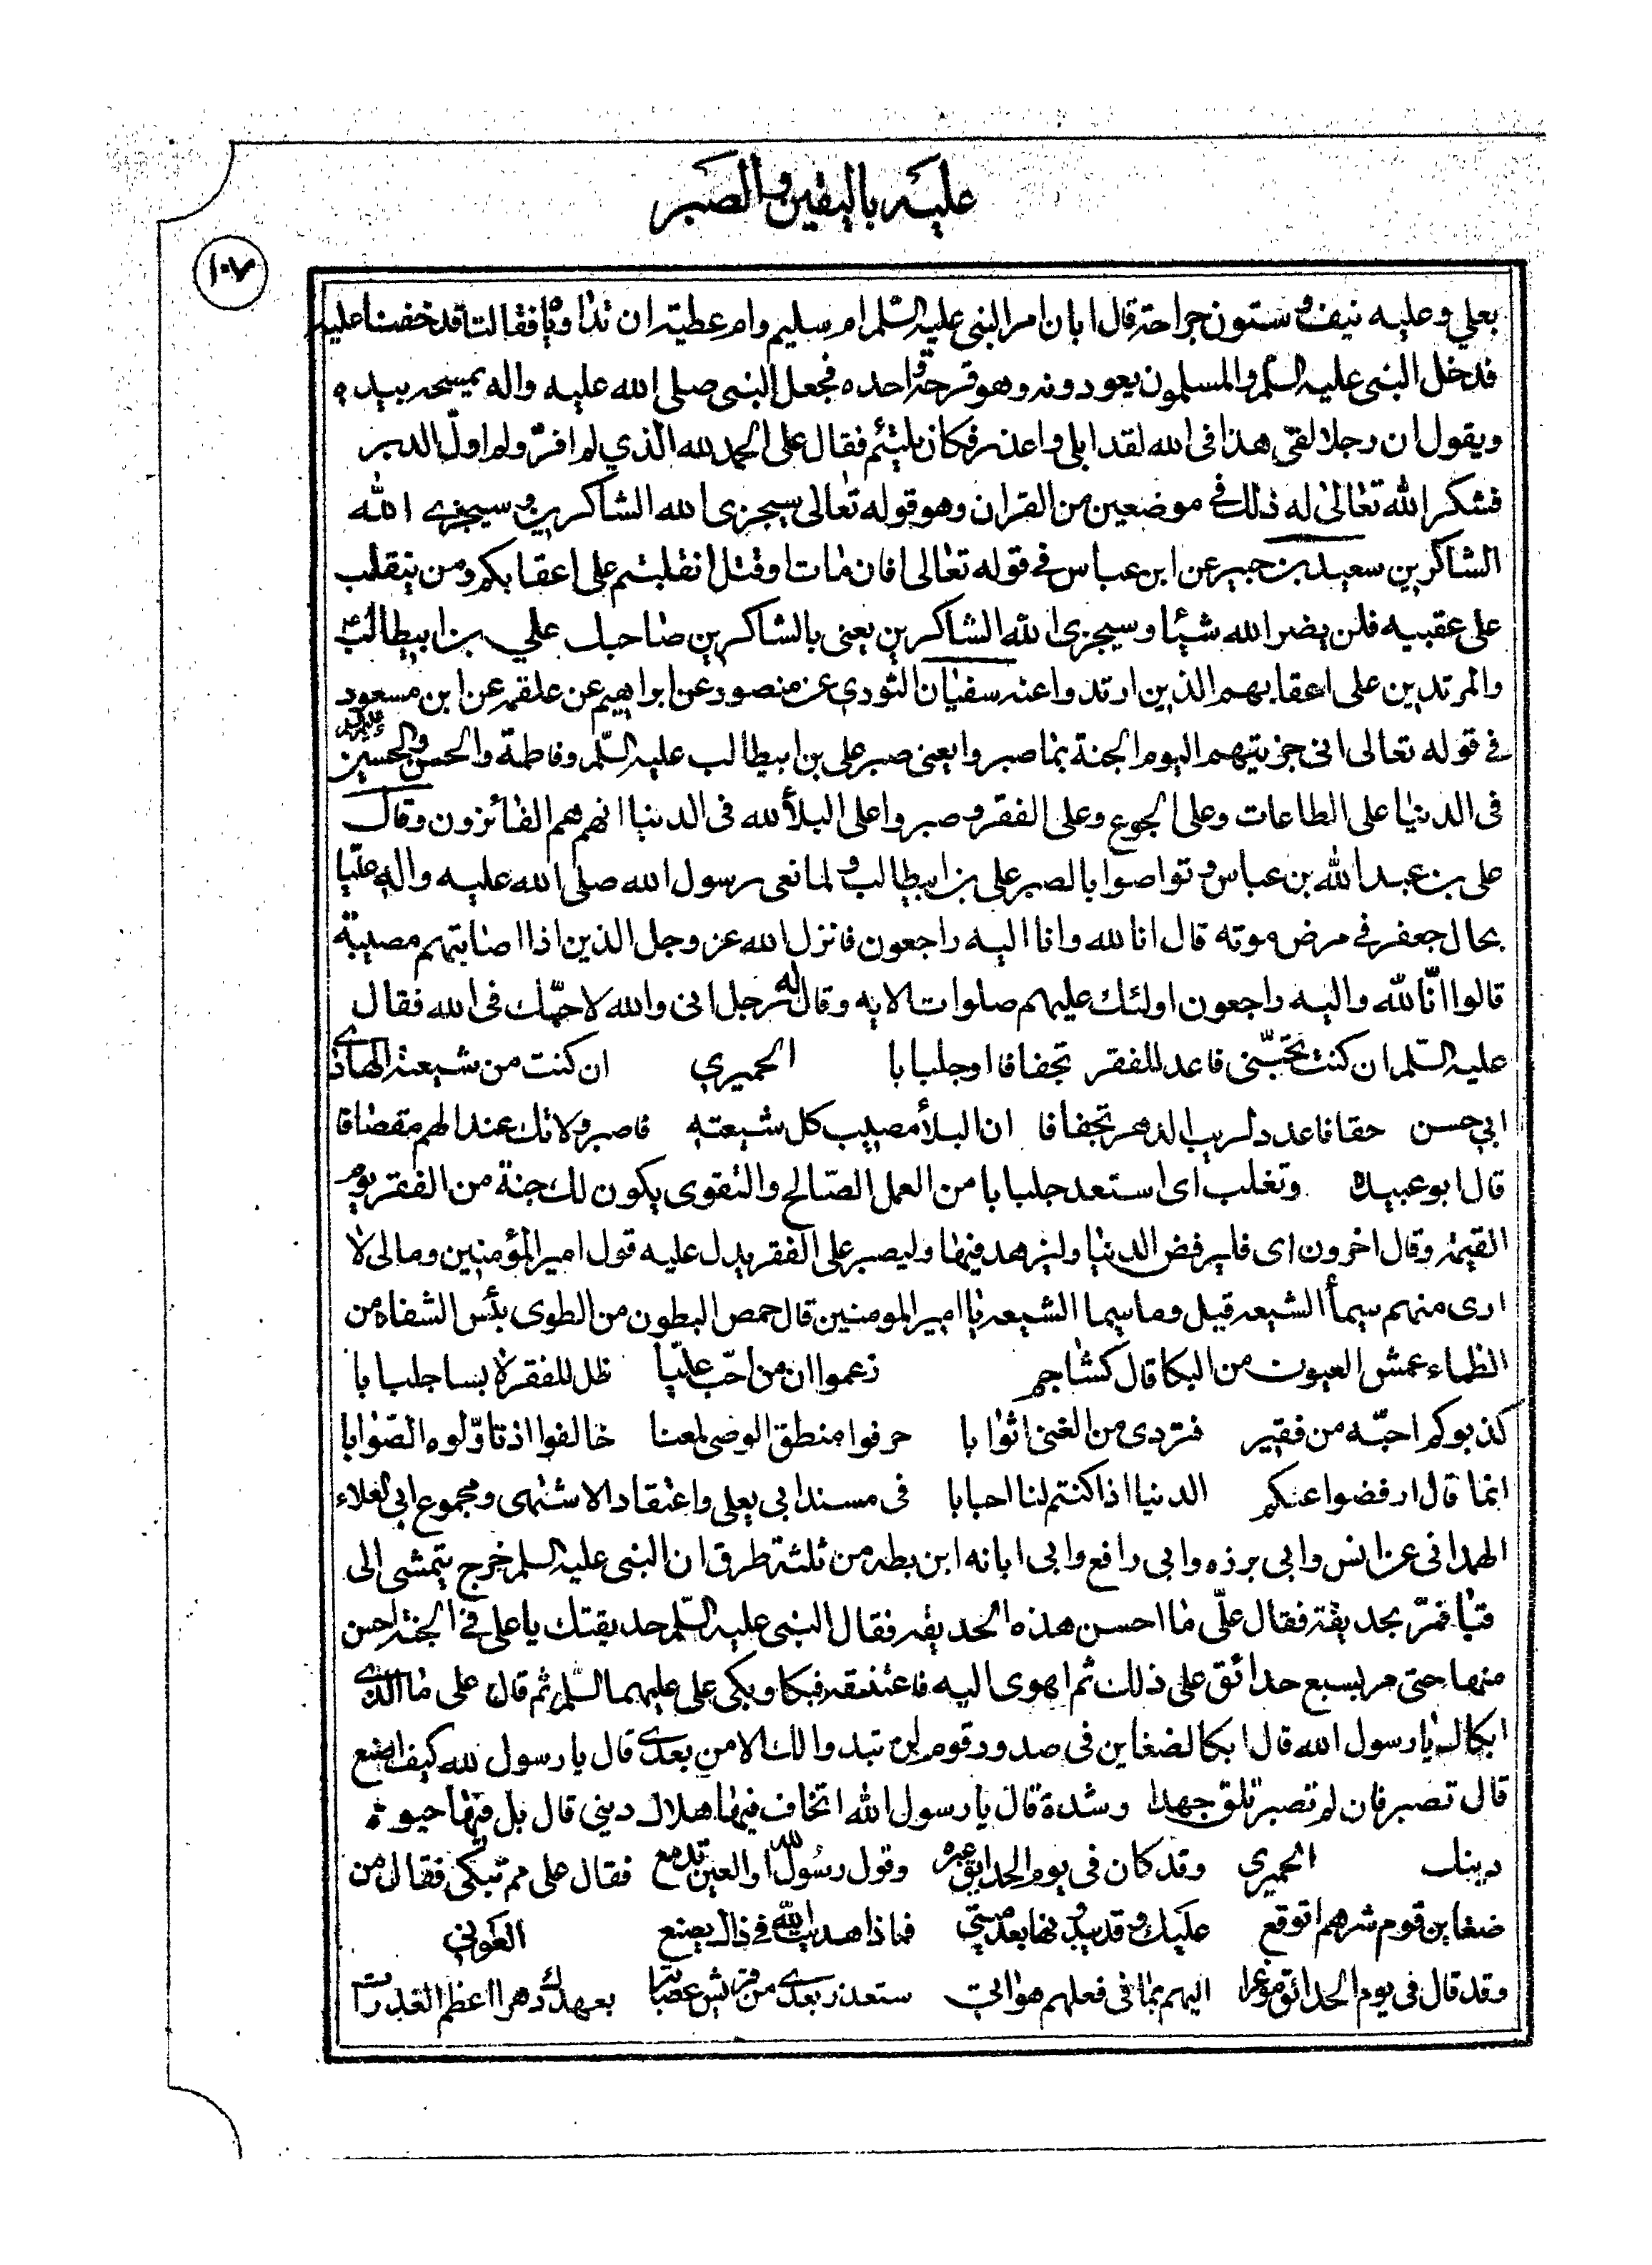 عليه باليقين والصبر
١٠٧
بعلي وعليه نيف وستون جراحة قال ابان امر النبي عليه السّلم ام سليم وام عطية ان تداوياه فقالتا قد خفنا عليه
فدخل النبي عليه السلم والمسلمون يعودونه وهو قرحة واحده فجعل النبي صلى الله عليه واله يمسحه بيده
ويقول ان رجلا لقى هذا في الله لقد ابلى واعذر فكان يلتئم فقال على الحمد لله الذي لم افرّ ولم اولّ الدبر
فشكر الله تعالى له ذلك في موضعين من القران وهو قوله تعالى سيجزى الله الشاكرين وسيجزي الله
الشاكرين سعيد بن جبير عن ابن عباس في قوله تعالى افان مات او قتل انقلبتم على اعقابكم ومن ينقلب
على عقبيه فلن يضر الله شيئا وسيجزى الله الشاكرين يعنى بالشاكرين صاحبك علي بن ابيطالب
والمرتدين على اعقابهم الذين ارتدوا عنه سفيان الثوري عن منصور عن ابراهيم عن علقمه عن ابن مسعود
في قوله تعالى انى جزيتهم اليوم الجنة بما صبروا يعنى صبر على بن ابيطالب عليه السّلم وفاطمة والحسن والحسين
فى الدنيا على الطاعات وعلى الجوع وعلى الفقر وصبروا على البلأ لله فى الدنيا انهم هم الفائزون وقال
على بن عبد الله بن عباس وتواصوا بالصبر على بن ابيطالب ولما نعى رسول الله صلى الله عليه واله عليّا
بحال جعفر في مرض موته قال انا لله وانا اليه راجعون فانزل الله عز وجل الذين اذا اصابتهم مصيبة
قالوا انّا لله واليه راجعون اولئك عليهم صلوات الايه وقال له رجل انى والله لاحبّك فى الله فقال
عليه السّلم ان كنت تحبّنى فاعد للفقر تجفافا او جلبابا الحميري ان كنت من شيعة الهادي
ابي حسن حقا فاعدد لريب الدهر تجفافا ان البلأ مصيب كل شيعته فاصبر ولا تك عند الهم مقصافا
قال ابو عبيده وتغلب اى استعد جلبابا من العمل الصّالح والتقوى يكون لك جنة من الفقر يوم
القيمة وقال اخرون اى فليرفض الدنيا وليزهد فيها وليصبر على الفقر يدل عليه قول امير المؤمنين ومالى لا
ارى منهم سيمأ الشيعه قيل وما سيما الشيعه يا امير المومنين قال خمص البطون من الطوى يبس الشفاه من
الظماء عمش العيون من البكا قال كشاجم زعموا ان من احّب عليّا ظل للفقر لابسا جلبابا
كذبوا كم احبّه من فقير فتردى من الغنى اثوابا حرفوا منطق الوصى لمعنا خالفوا اذ تاوّلوه الصّوابا
انما قال ارفضوا عنكم الدنيا اذا كنتم لنا احبابا فى مسند ابى يعلى واعتقاد الاشنهى ومجموع ابى العلاء
الهمدانى عن انس وابى برزه وابى رافع وابى ابانه ابن بطه من ثلثة طرق ان النبى عليه السلم خرج يتمشى الى
قبا فمرّ بحديقة فقال علّى ما احسن هذه الحديقه فقال النبى عليه السّلم حديقتك يا على في الجنة احسن
منها حتى مر بسبع حدائق على ذلك ثم اهوى اليه فاعتنقه فبكا وبكى على عليهما السّلم ثم قال على ما الذي
ابكاك يا رسول الله قال ابكا لضغاين فى صدور قوم لن تبدو لك الا من بعدي قال يا رسول لله كيف اصنع
قال تصبر فان لم تصبر تلق جهدا وشدة قال يا رسول الله اتخاف فيها هلاك ديني قال بل فيها حيوة
دينك الحميري وقد كان فى يوم الحدايق عبره وقول رسول الله والعين تدمع فقال على مم تبكى فقال من
ضغاين قوم شرهم اتوقع عليك وقد يبدونها بعد ميتتي فماذا هديت الله في ذاك يصنع العوني
وقد قال فى يوم الحدائق موعزا اليهم بما في فعلهم هو ات ستغدر بعدي من قريش عصابة بعهدك دهرا اعظم الغدرات